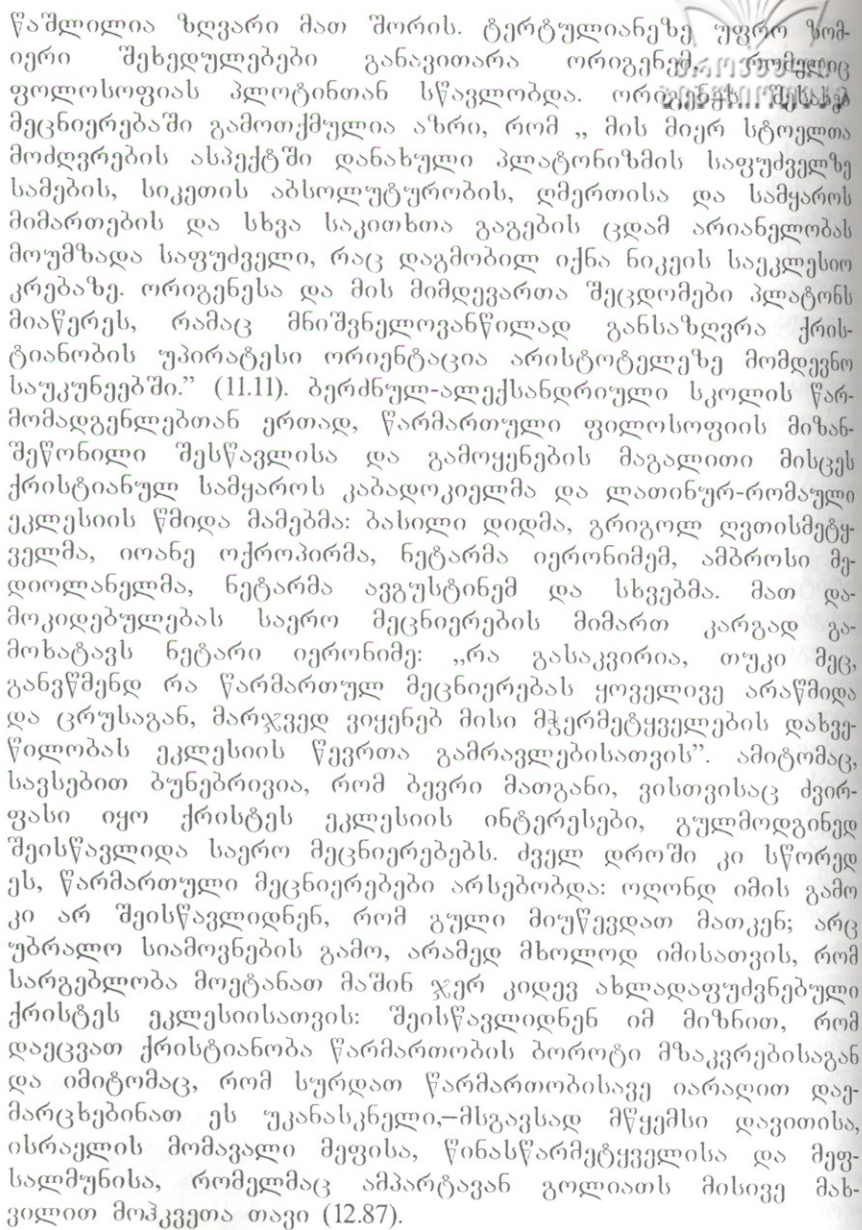 წაშლილია ზღვარი მათ შორის. ტერტულიანეზე უფრო ზომ-
იერი შეხედულებები განავითარა ორიგენემ, რომელიც
ფოლოსოფიას პლოტინთან სწავლობდა. ორიგენეს შესახებ
მეცნიერებაში გამოთქმულია აზრი, რომ „ მის მიერ სტოელთა
მოძღვრების ასპექტში დანახული პლატონიზმის საფუძველზე
სამების, სიკეთის აბსოლუტურობის, ღმერთისა და სამყაროს
მიმართების და სხვა საკითხთა გაგების ცდამ არიანელობას
მოუმზადა საფუძველი, რაც დაგმობილ იქნა ნიკეის საეკლესიო
კრებაზე. ორიგენესა და მის მიმდევართა შეცდომები პლატონს
მიაწერეს, რამაც მნიშვნელოვანწილად განსაზღვრა ქრის-
ტიანობის უპირატესი ორიენტაცია არისტოტელეზე მომდევნო
საუკუნეებში.” (11.11). ბერძნულ-ალექსანდრიული სკოლის წარ-
მომადგენლებთან ერთად, წარმართული ფილოსოფიის მიზან-
შეწონილი შესწავლისა და გამოყენების მაგალითი მისცეს
ქრისტიანულ სამყაროს კაბადოკიელმა და ლათინურ-რომაული
ეკლესიის წმიდა მამებმა: ბასილი დიდმა, გრიგოლ ღვთისმეტყ-
ველმა, იოანე ოქროპირმა, ნეტარმა იერონიმემ, ამბროსი მე-
დიოლანელმა, ნეტარმა ავგუსტინემ და სხვებმა. მათ და-
მოკიდებულებას საერო მეცნიერების მიმართ კარგად გა-
მოხატავს ნეტარი იერონიმე: „რა გასაკვირია, თუკი მეც,
განვწმენდ რა წარმართულ მეცნიერებას ყოველივე არაწმიდა
და ცრუსაგან, მარჯვედ ვიყენებ მისი მჭერმეტყველების დახვე-
წილობას ეკლესიის წევრთა გამრავლებისათვის”. ამიტომაც,
სავსებით ბუნებრივია, რომ ბევრი მათგანი, ვისთვისაც ძვირ-
ფასი იყო ქრისტეს ეკლესიის ინტერესები, გულმოდგინედ
შეისწავლიდა საერო მეცნიერებებს. ძველ დროში კი სწორედ
ეს, წარმართული მეცნიერებები არსებობდა: ოღონდ იმის გამო
კი არ შეისწავლიდნენ, რომ გული მიუწევდათ მათკენ; არც
უბრალო სიამოვნების გამო, არამედ მხოლოდ იმისათვის, რომ
სარგებლობა მოეტანათ მაშინ ჯერ კიდევ ახლადაფუძვნებული
ქრისტეს ეკლესიისათვის: შეისწავლიდნენ იმ მიზნით, რომ
დაეცვათ ქრისტიანობა წარმართობის ბოროტი მზაკვრებისაგან
და იმიტომაც, რომ სურდათ წარმართობისავე იარაღით დაე-
მარცხებინათ ეს უკანასკნელი,–მსგავსად მწყემსი დავითისა,
ისრაელის მომავალი მეფისა, წინასწარმეტყველისა და მეფ-
სალმუნისა, რომელმაც ამპარტავან გოლიათს მისივე მახ-
ვილით მოჰკვეთა თავი (12.87).